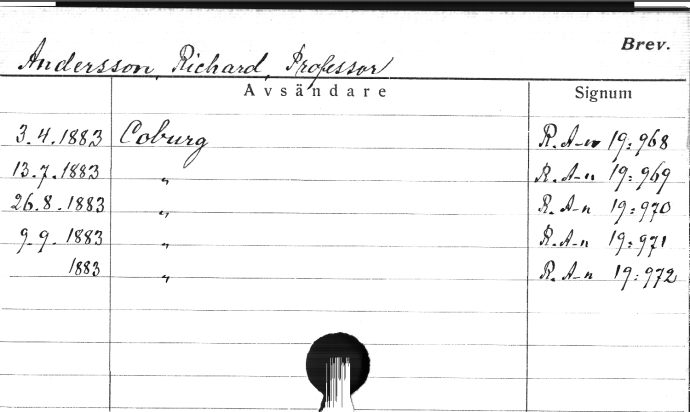 Brev.
Andersson, Richard, Professor
Avsändare Signum
3.4.1883 Coburg R. A-n 19:968
13.7.1883 " R. A-n 19:969
26.8.1883 " R. A-n 19:970
9.9.1883 " R. A-n 19:971
1883 " R. A-n 19:972